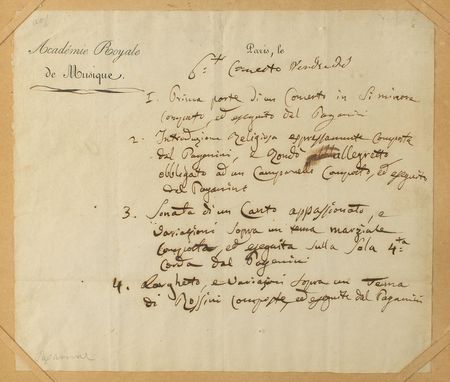 Académie Royale
de Musique.
Paris, le
6.me Concerto Vendredi
1. Prima parte di un Concerto in Si minore
composto, ed eseguito dal Paganini
2. Introduzione Religiosa espressamente composta
dal Paganini, e Rondò Allegretto
obbligato ad un Campanello Composto, ed eseguito
da Paganini
3. Sonata di un Canto appassionato, e
Variazioni sopra un tema marziale
composta, ed eseguita sulla sola 4.ta
Corda dal Paganini
4. Larghetto, e Variazioni sopra un Tema
di Rossini composte, ed eseguite dal Paganini
Paganini